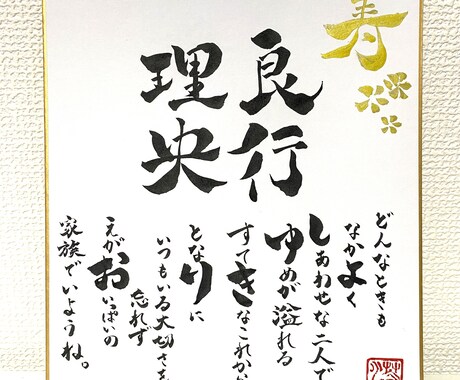 寿
良行
理央
どんなときも
なかよく
しあわせな二人で
ゆめが溢れる
すてきなこれから
となりに
いつもいる大切さを
忘れず
えがおいっぱいの
家族でいようね。